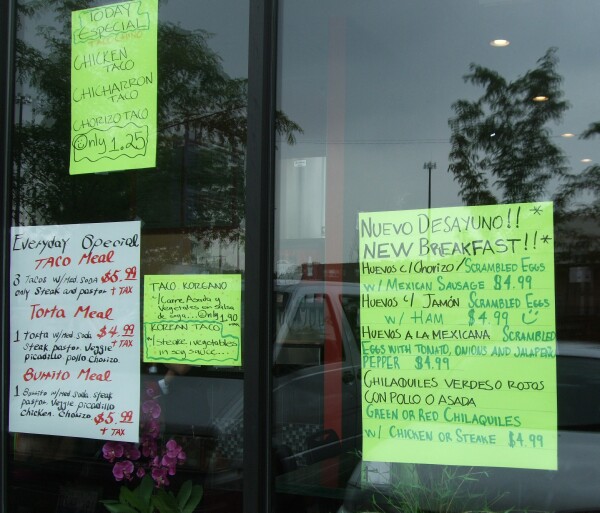 TODAY
ESPECIAL
CHICKEN
TACO
CHICHARRON
TACO
CHORIZO TACO
Only 1.25
Everyday Special
TACO Meal
3 Tacos w/Med. SODA $5.99
only Steak and pastor + TAX
Torta Meal
1 Torta w/med. soda $4.99
Steak pastor. Veggie + TAX
picadillo pollo Chorizo.
Burrito Meal
1 Burrito w/med. soda Steak
pastor Veggie picadillo
chicken. Chorizo. $5.99
+ TAX
TACO KOREANO
Carne Asada y
Vegetales en Salsa
de soya... Only 1.90
KOREAN TACO
w/ Steake, vegetables
in soy sauce...
NUEVO DESAYUNO!! *
NEW BREAKFAST!! *
HUEVOS c/CHORIZO/SCRAMBLED EGGS
w/ MEXICAN SAUSAGE $4.99
HUEVOS c/ JAMÓN SCRAMBLED EGGS
w/ HAM $4.99
HUEVOS A LA MEXICANA SCRAMBLED
EGGS WITH TOMATO, ONIONS AND JALAPEÑO
PEPPER $4.99
CHILAQUILES VERDES O ROJOS
CON POLLO O ASADA
GREEN OR RED CHILAQUILES
w/ CHICKEN OR STEAKE $4.99